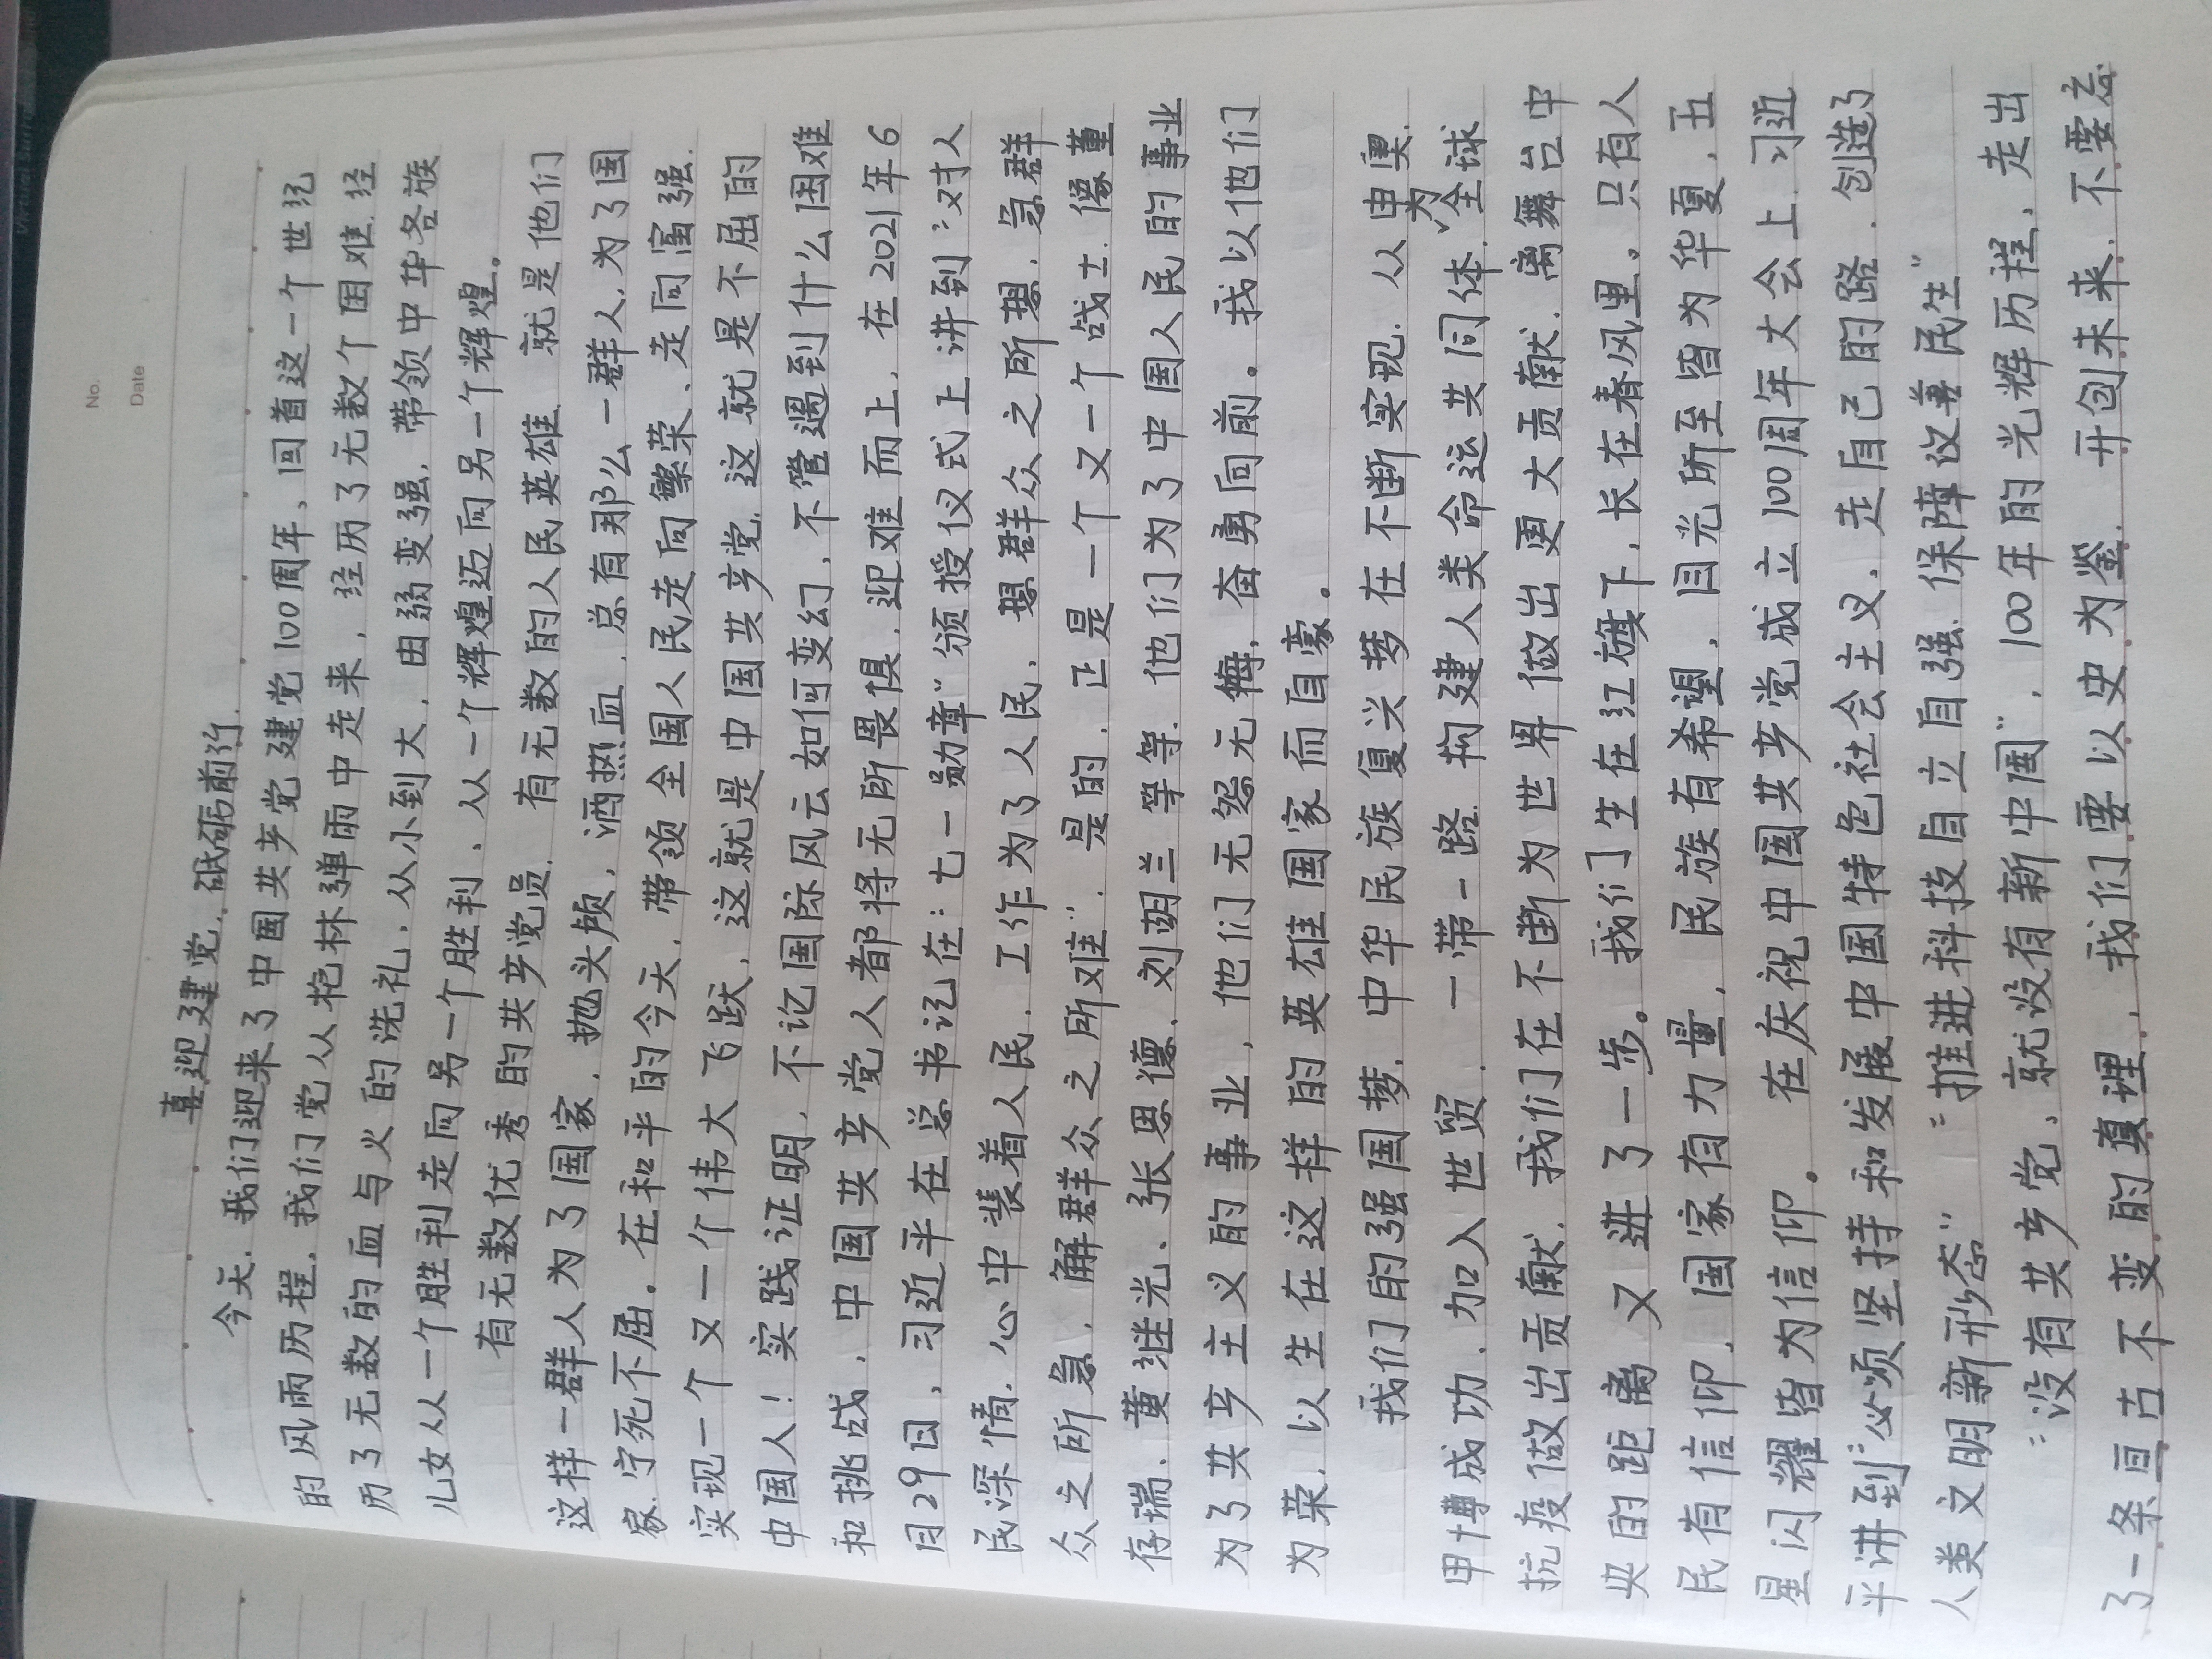 No.
Date
喜迎建党，砥砺前行.
今天，我们迎来了中国共产党建党100周年、回首这一个世纪
的风雨历程，我们党从枪林弹雨中走来，经历了无数个困难，经
历了无数的血与火的洗礼，从小到大，由弱变强，带领中华各族
儿女从一个胜利走向另一个胜利、从一个辉煌迈向另一个辉煌。
有无数优秀的共产党员，有无数的人民英雄，就是他们
这样一群人为了国家，抛头颅，洒热血，总有那么一群人，为了国
家，宁死不屈。在和平的今天，带领全国人民走向繁荣、走向富强.
实现一个又一个伟大飞跃，这就是中国共产党，这就是不屈的
中国人！实践证明，不论国际风云如何变幻，不管遇到什么困难
和挑战，中国共产党人都将无所畏惧，迎难而上，在2021年6
月29日，习近平在总书记在：七一勋章"颁授仪式上讲到："对人
民深情，心中装着人民，工作为了人民，想群众之所想，急群
众之所急，解群众之所难"，是的，正是一个又一个战士，像董
存瑞、黄继光、张思德、刘胡兰等等，他们为了中国人民的事业
为了共产主义的事业，他们无怨无悔，奋勇向前。我以他们
为荣，以生在这样的英雄国家而自豪。
我们的强国梦，中华民族复兴梦在不断实现，从申奥，
申博成功，加入世贸，一带一路，构建人类命运共同体，为全球
抗疫做出贡献，我们在不断为世界做出更大贡献，离舞台中
央的距离又进了一步。我们生在红旗下，长在春风里。只有人
民有信仰，国家有力量，民族有希望，目光所至皆为华夏，五
星闪耀皆为信仰。在庆祝中国共产党成立100周年大会上，习近
平讲到："必须坚持和发展中国特色社会主义，走自己的路，创造了
人类文明新形态""推进科技自立自强，保障改善民生"
"没有共产党，就没有新中国"，100年的光辉历程，走出
了一条亘古不变的真理，我们要以史为鉴，开创未来，不要忘